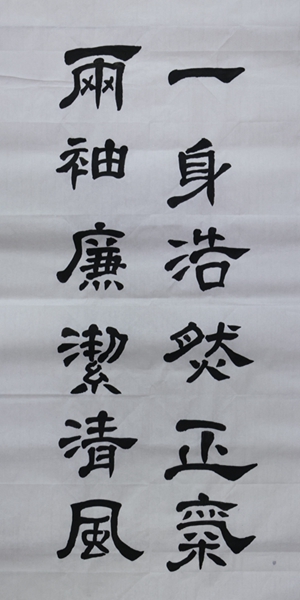 一身浩然正氣
兩袖廉潔清風